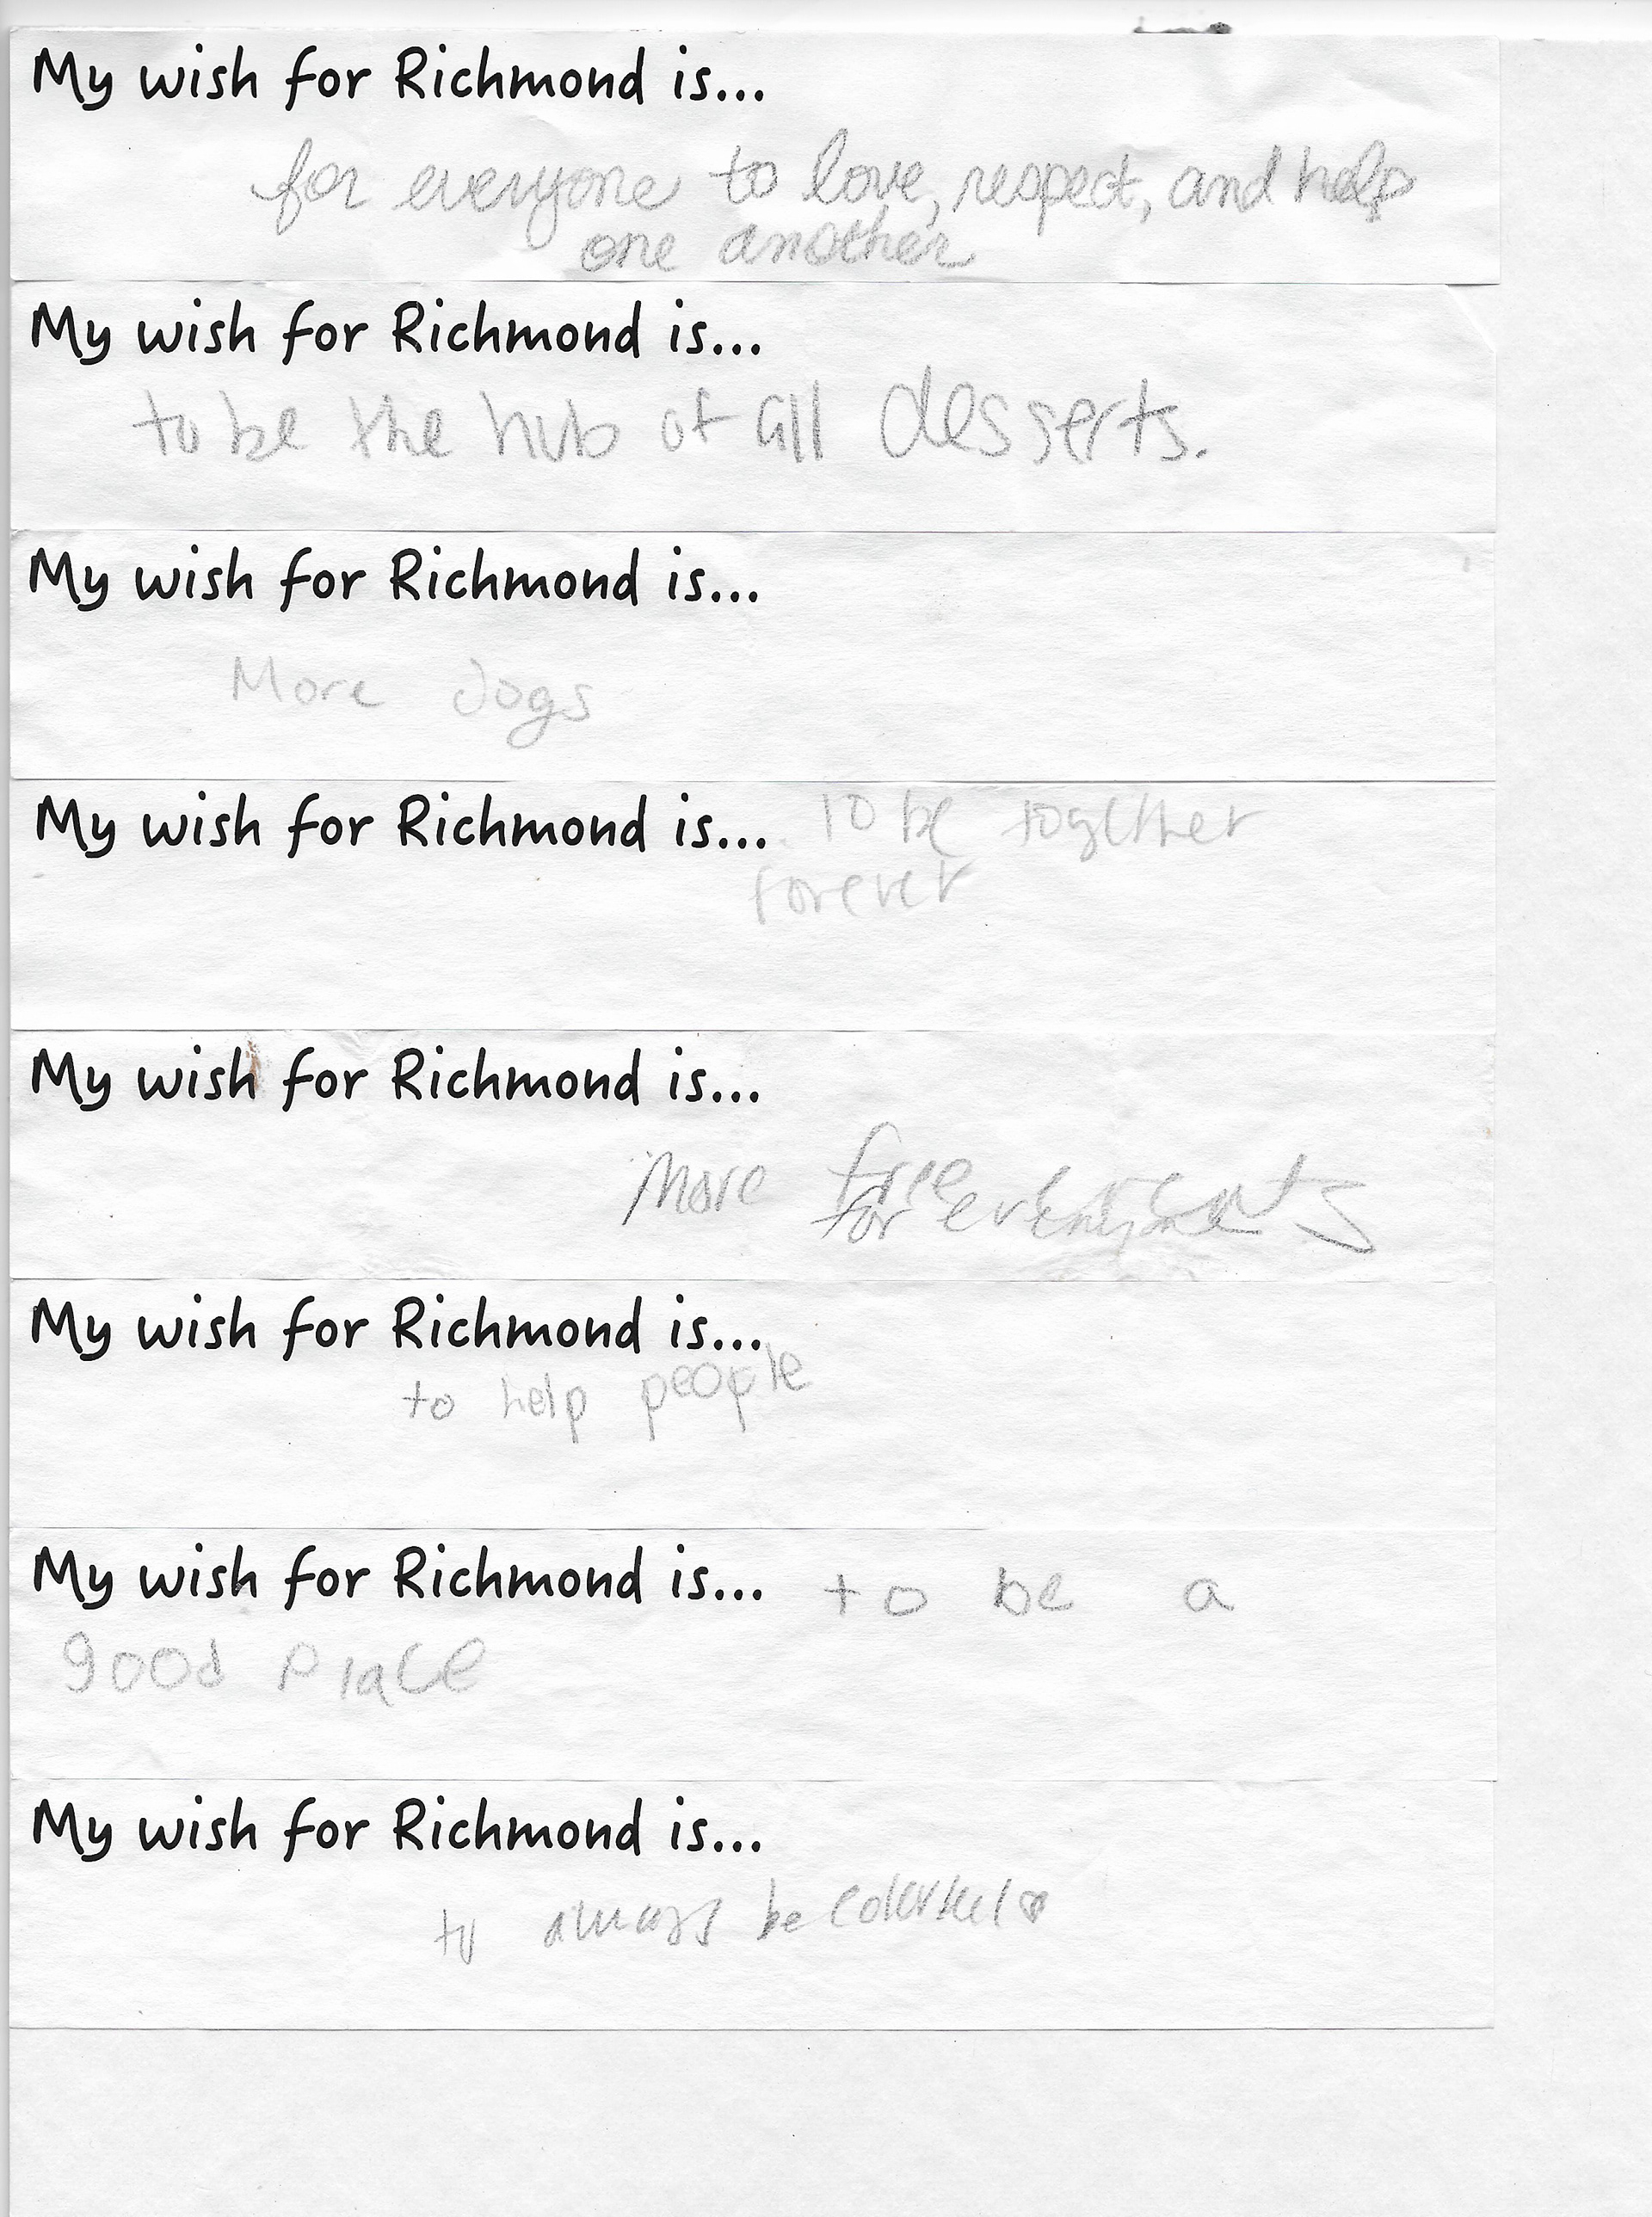 My wish for Richmond is...
for everyone to love, respect, and help
one another
My wish for Richmond is...
to be the hub of all desserts.
My wish for Richmond is...
More dogs
My wish for Richmond is... To be together
forever
My wish for Richmond is...
More free events
for everyone
My wish for Richmond is...
to help people
My wish for Richmond is... to be a
good Place
My wish for Richmond is...
to always be colorful